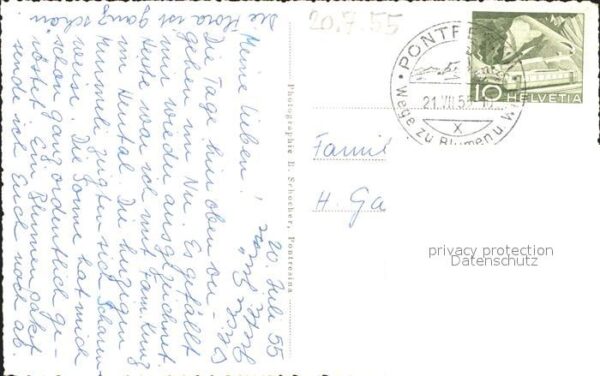 20.7.55
20. Juli 55
Meine Lieben!
Die Tage hier oben ver-
gehen im Nu. Es gefällt
mir wieder ausgezeichnet.
Heute war ich mit Fam. Kunz
im Heutal. Die herzigen
Murmeli zeigten sich scharen-
weise. Die Sonne hat mich
schon ganz ordentlich ge-
röstet. Ein Blumenpaket
sende ich Euch noch ab.
Die Flora ist ganz schön
Photographie B. Schocher, Pontresina
PONTRE
21.VII.55
Wege zu Blumen u. W
X
10 HELVETIA
Famil
H. Ga
privacy protection
Datenschutz